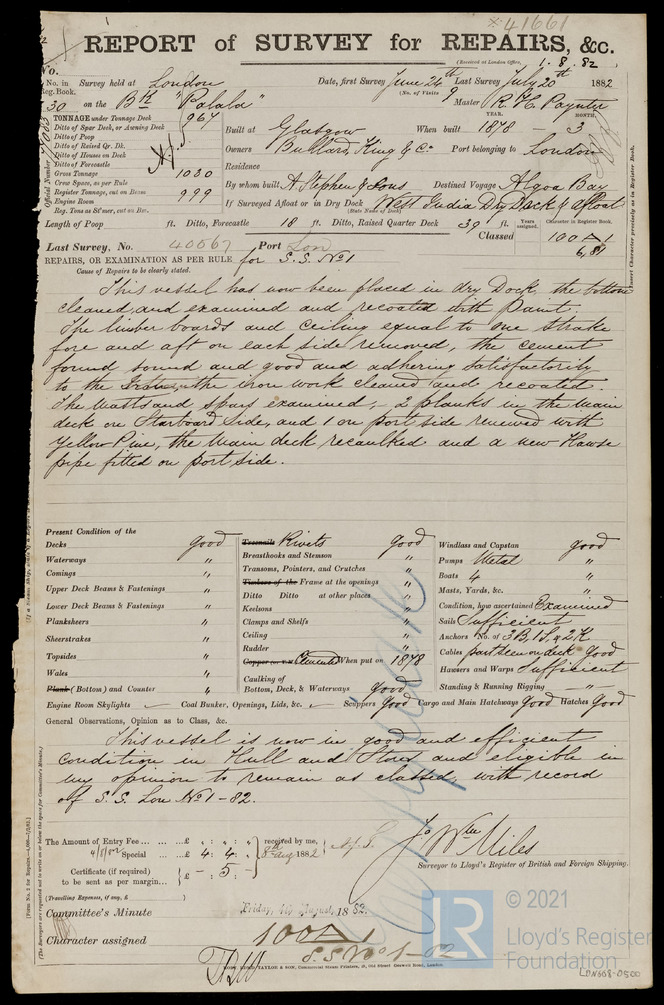 *41661
REPORT of SURVEY for REPAIRS, &c.
(Received at London Office, 1.8.82
No.
No. in Reg. Book. Survey held at London Date, first Survey June 26th Last Survey July 20th 1882
(No. of Visits 9
30 on the Bk "Palala" Master R. H. Poynter
TONNAGE under Tonnage Deck 967
Ditto of Spar Deck, or Awning Deck
Ditto of Poop
Ditto of Raised Qr. Dk.
Ditto of Houses on Deck
Ditto of Forecastle
Gross Tonnage 1030
Crew Space, as per Rule
Register Tonnage, cut on Beam 999
Engine Room
Reg. Tons as St'mer, cut on Bm.
Official Number
YEAR. MONTH.
Built at Glasgow When built 1878 - 3
Owners Bullard, King & Co. Port belonging to London
Residence
By whom built A. Stephen & Sons Destined Voyage Algoa Bay
If Surveyed Afloat or in Dry Dock West India Dry Dock & afloat
(State Name of Dock)
Length of Poop ft. Ditto, Forecastle 18 ft. Ditto, Raised Quarter Deck 39 ft. Years assigned. Character in Register Book.
Insert Character precisely as in Register Book.
Last Survey, No. 40067 Port Lon Classed 100 A 1
6,81
REPAIRS, OR EXAMINATION AS PER RULE for S.S. No 1
Cause of Repairs to be clearly stated.
This vessel has now been placed in dry Dock, the bottom
cleaned, and examined and recoated with paint.
The limber boards and ceiling equal to one strake
fore and aft on each side removed, the cement
found sound and good and adhering satisfactorily
to the the iron work cleaned and recoated.
The masts and spars examined; 2 planks in the main
deck on Starboard Side, and 1 on port side renewed with
Yellow Pine, the main deck recaulked and a new Hawse
pipe fitted on port side.
Present Condition of the
Decks good
Waterways "
Comings "
Upper Deck Beams & Fastenings "
Lower Deck Beams & Fastenings "
Planksheers "
Sheerstrakes "
Topsides "
Wales "
Plank (Bottom) and Counter "
Treenails Rivets good
Breasthooks and Stemson "
Transoms, Pointers, and Crutches "
Timbers of the Frame at the openings "
Ditto Ditto at other places "
Keelsons "
Clamps and Shelfs "
Ceiling "
Rudder "
Cemented When put on 1878
Caulking of
Bottom, Deck, & Waterways good
Windlass and Capstan good
Pumps Metal "
Boats 4 "
Masts, Yards, &c. "
Condition, how ascertained Examined
Sails Sufficient
Anchors No. of 3B, 1S, & 2K
Cables part seen on deck good
Hawsers and Warps Sufficient
Standing & Running Rigging — " —
Engine Room Skylights Coal Bunker, Openings, Lids, &c. Scuppers good Cargo and Main Hatchways good Hatches good
General Observations, Opinion as to Class, &c.
This vessel is now in good and efficient
condition in Hull and Stores and eligible in
my opinion to remain as classed, with record
of S.S. Lon No 1-82.
The Amount of Entry Fee ... £ " : " : " received by me,
4/8/82 Special ... £ 4 : 4 : " 8th Aug 1882
Certificate (if required) to be sent as per margin ... £ - 5 : -
(Travelling Expenses, if any, £ )
Jo. Wm Miles
Surveyor to Lloyd's Register of British and Foreign Shipping.
Committee's Minute Friday, 4th August, 1882.
Character assigned 100 A 1
S.S. No 1-82
© 2021
LR
Lloyd's Register
Foundation
LON668-0500